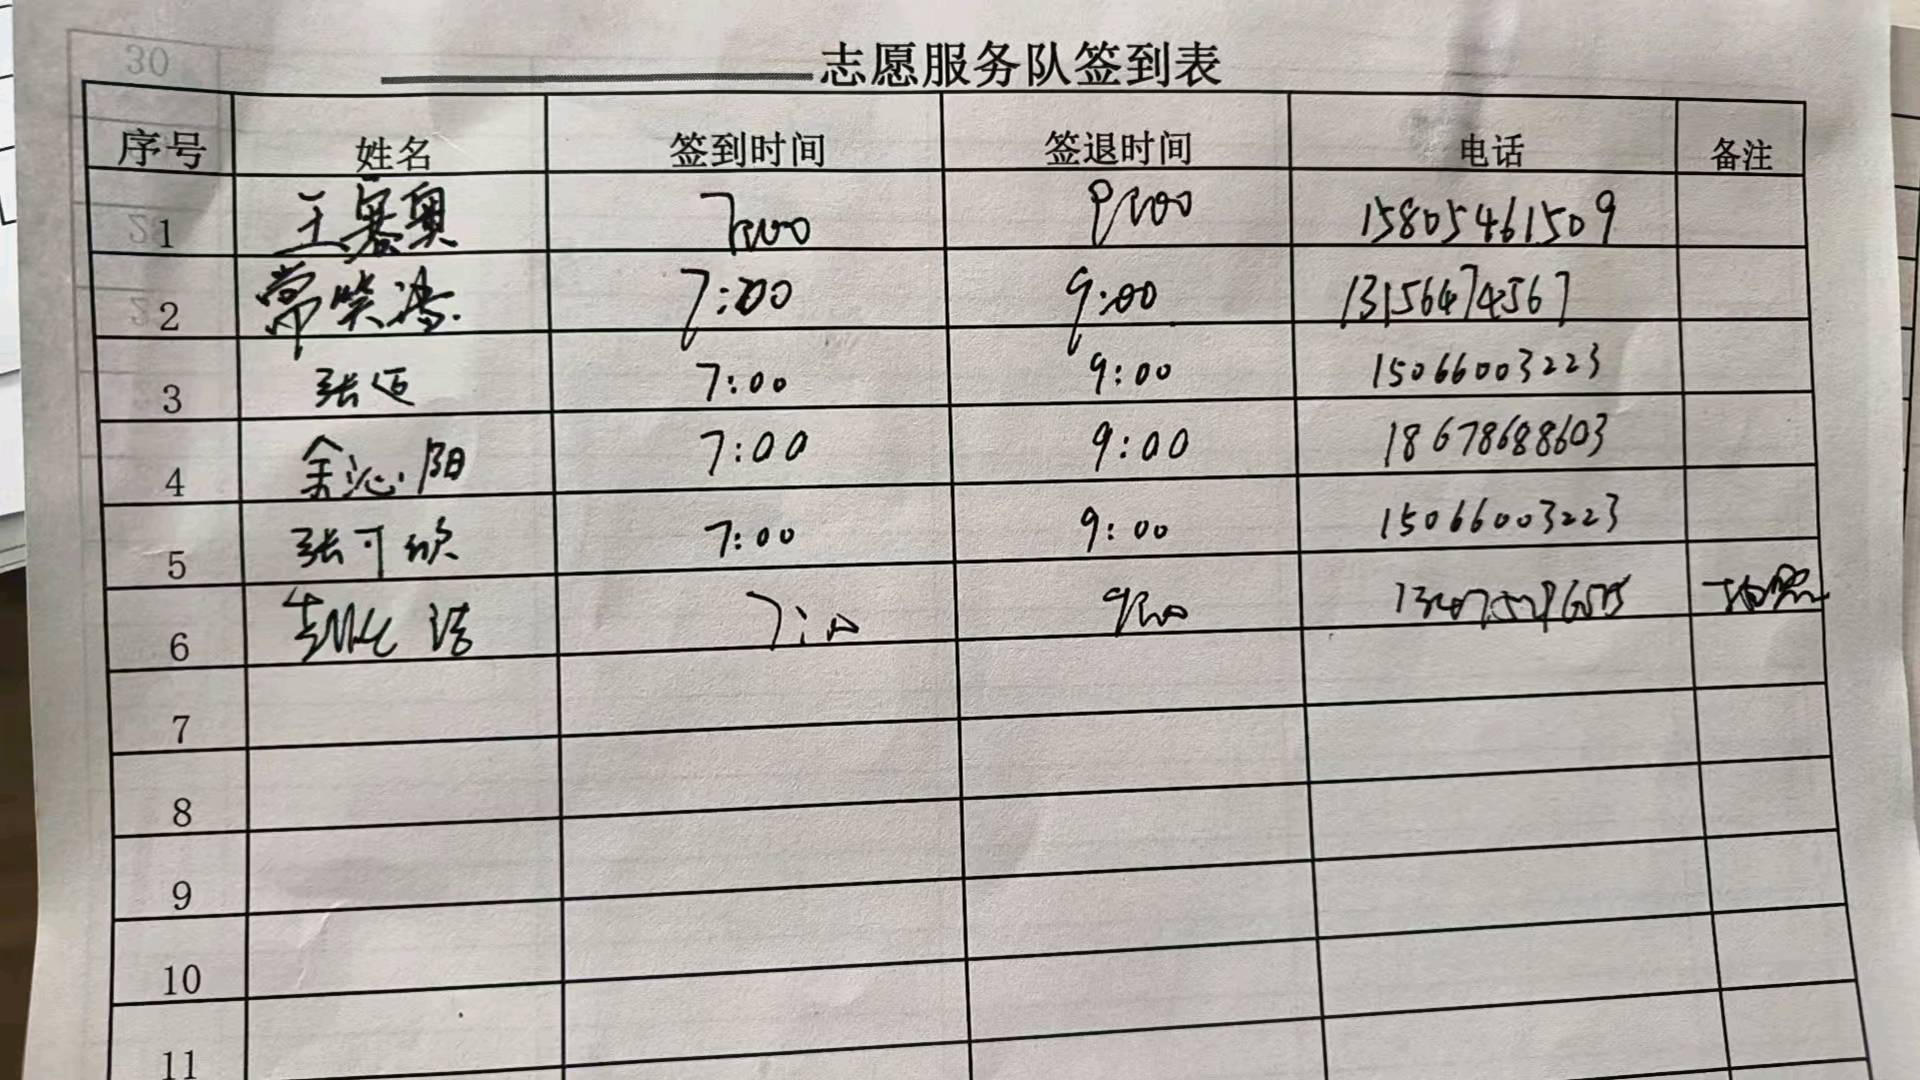 30
志愿服务队签到表
序号 姓名 签到时间 签退时间 电话 备注
1 王寨奥 7:00 9:00 15805461509
2 常笑 7:00 9:00 13156474567
3 张迈 7:00 9:00 15066003223
4 余沁阳 7:00 9:00 18678688603
5 张可欣 7:00 9:00 15066003223
6 浩 7:00 9:00 拍照
7
8
9
10
11